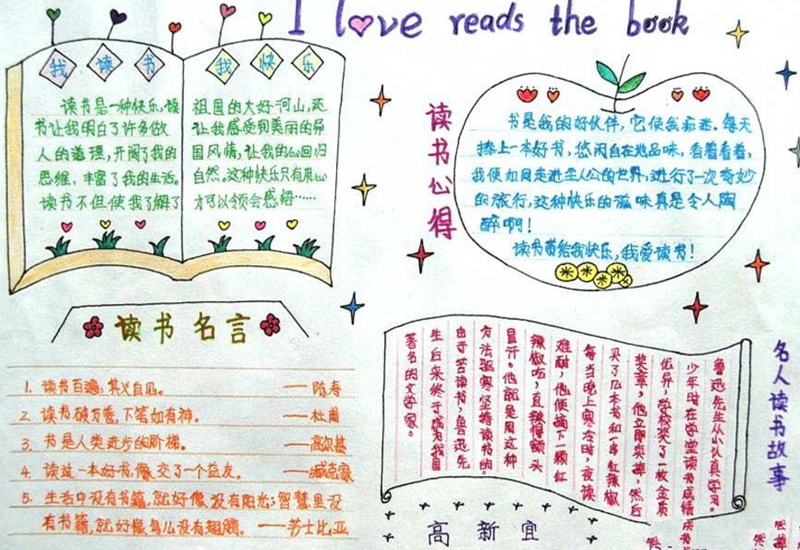 I love reads the book
我读书 我快乐
读书是一种快乐,读
书让我明白了许多做
人的道理,开阔了我的
思维,丰富了我的生活。
读书不但使我了解了
祖国的大好河山,还
让我感受到美丽的异
国风情,让我的心回归
自然。这种快乐只有用心
才可以领会感悟……
读书心得
书是我的好伙伴,它使我痴迷。每天
捧上一本好书,悠闲自在地品味,看着看着,
我便如同走进主人公的世界,进行了一次奇妙
的旅行,这种快乐的滋味真是令人陶
醉啊!
读书带给我快乐,我爱读书!
读书名言
1. 读书百遍,其义自见。 ——陈寿
2. 读书破万卷,下笔如有神。 ——杜甫
3. 书是人类进步的阶梯。 ——高尔基
4. 读过一本好书,像交了一个益友。 ——臧克家
5. 生活中没有书籍,就好像没有阳光;智慧里没
有书籍,就好像鸟儿没有翅膀。 ——莎士比亚
名人读书故事
鲁迅先生从小认真学习。
少年时在学堂读书成绩
优异,学校奖了一枚金质
奖章,他立即卖掉,然后
买了几本书和一串红辣椒
每当晚上寒冷时,夜读
难耐,他便摘下一颗红
辣椒吃,直辣得额头
冒汗。他就是用这种
方法驱寒坚持读书的。
由于苦读书,鲁迅先
生后来终于成为我国
著名的文学家。
高新宜